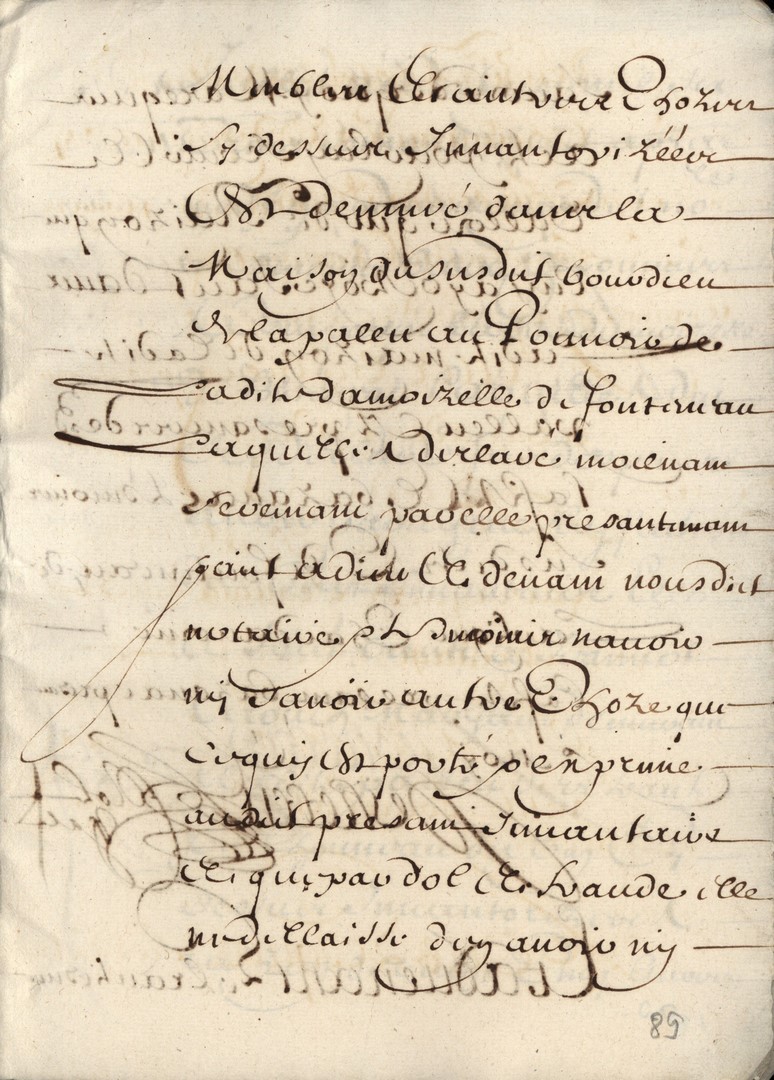 Meubles Et autres Chozes
Cy dessus Inuantorizées
Est demuré dans la
Maison du susdit bourdieu
En la palen au Pouuoir de
Ladite damoizelle de fonteneau
Laquelle A declaré moienam
seremant par elle presantemam
faict a dieu Et deuam nousdict
notaire de nauoir
ny sauoir autre Choze que
ce quy Est porté par
audict presam Inuantaire
Et que par dol Et fraude elle
ne dellaisse den auoir ny
89